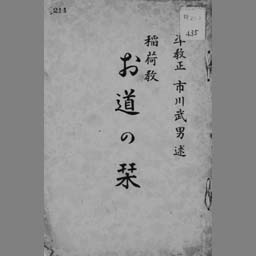 斗教正 市川武男述
稲荷教
お道の栞
211
435